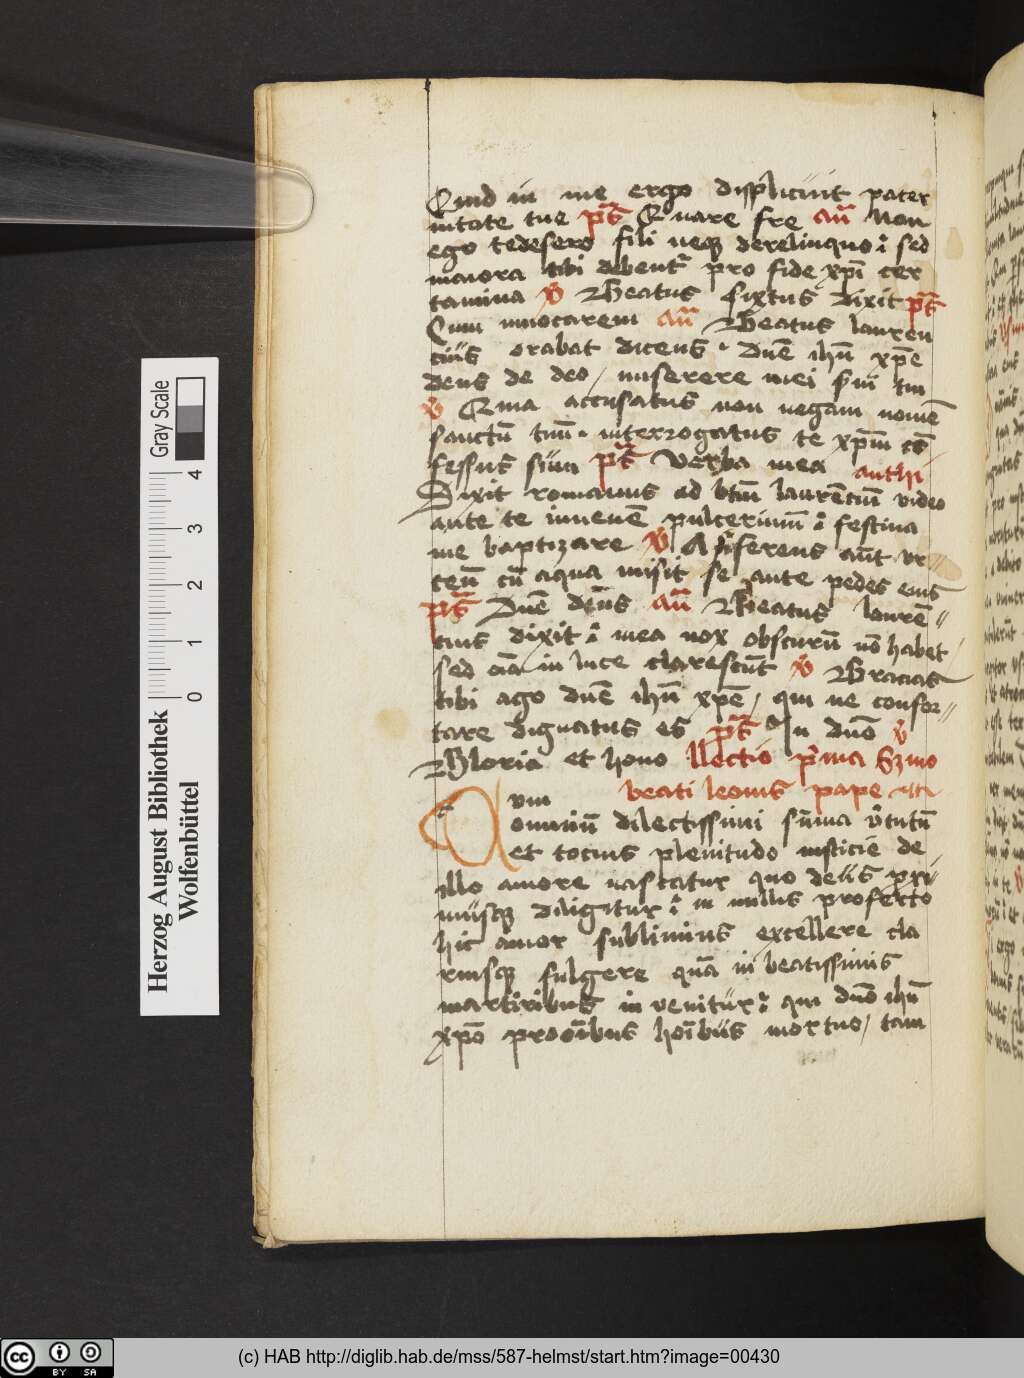 Quid in me ergo displicuit pater
nitate tue ps̄ Quare fre an̄ Non
ego te desero fili neqꝫ derelinquo sed
maiora tibi debent᷑ pro fide xp̄i cer
tamina v̄ Beatus sixtus dixit ps̄
Cum inuocarem an̄ Beatus lauren
cius orabat dicens . dn̄e ihū xp̄e
deus de deo / miserere mei tui
v̄ Quia accusatus non negaui nomē
sanctū tuū . interrogatus te xp̄m cō
fessus sum ps̄ Verba mea anthi
Dixit romanus ad btm̄ laurēciū video
ante te iuuenē pulcerimū festina
me baptizare v̄ Afferens aūt vr-
ceū cū aqua misit se ante pedes eius
ps̄ Dn̄e dn̄s an̄ Beatus laurē-
cius dixit mea nox obscurū nō habet
sed oīa in luce clarescūt v̄ Gracias
tibi ago dn̄e ihū xp̄e / qui me confor-
tare dignatus es ps̄ In dn̄o v̄
Gloria et hono llectio p̄ma Sꝫmo
beati leonis pape
Cum
omniū dilectissimi sūma v̄tutū
et tocius plenitudo iusticie de
illo amore nascatur quo deus pxi-
musqꝫ diligitur in nullis profecto
hic amor sublimius excellere cla
riusqꝫ fulgere quā in beatissimis
martiribus in venitur qui dn̄o ihū
xp̄o pro oībus hoībus mortuo / tam
Herzog August Bibliothek
Wolfenbüttel
0 1 2 3 4
Gray Scale
(c) HAB http://diglib.hab.de/mss/587-helmst/start.htm?image=00430
cc BY SA